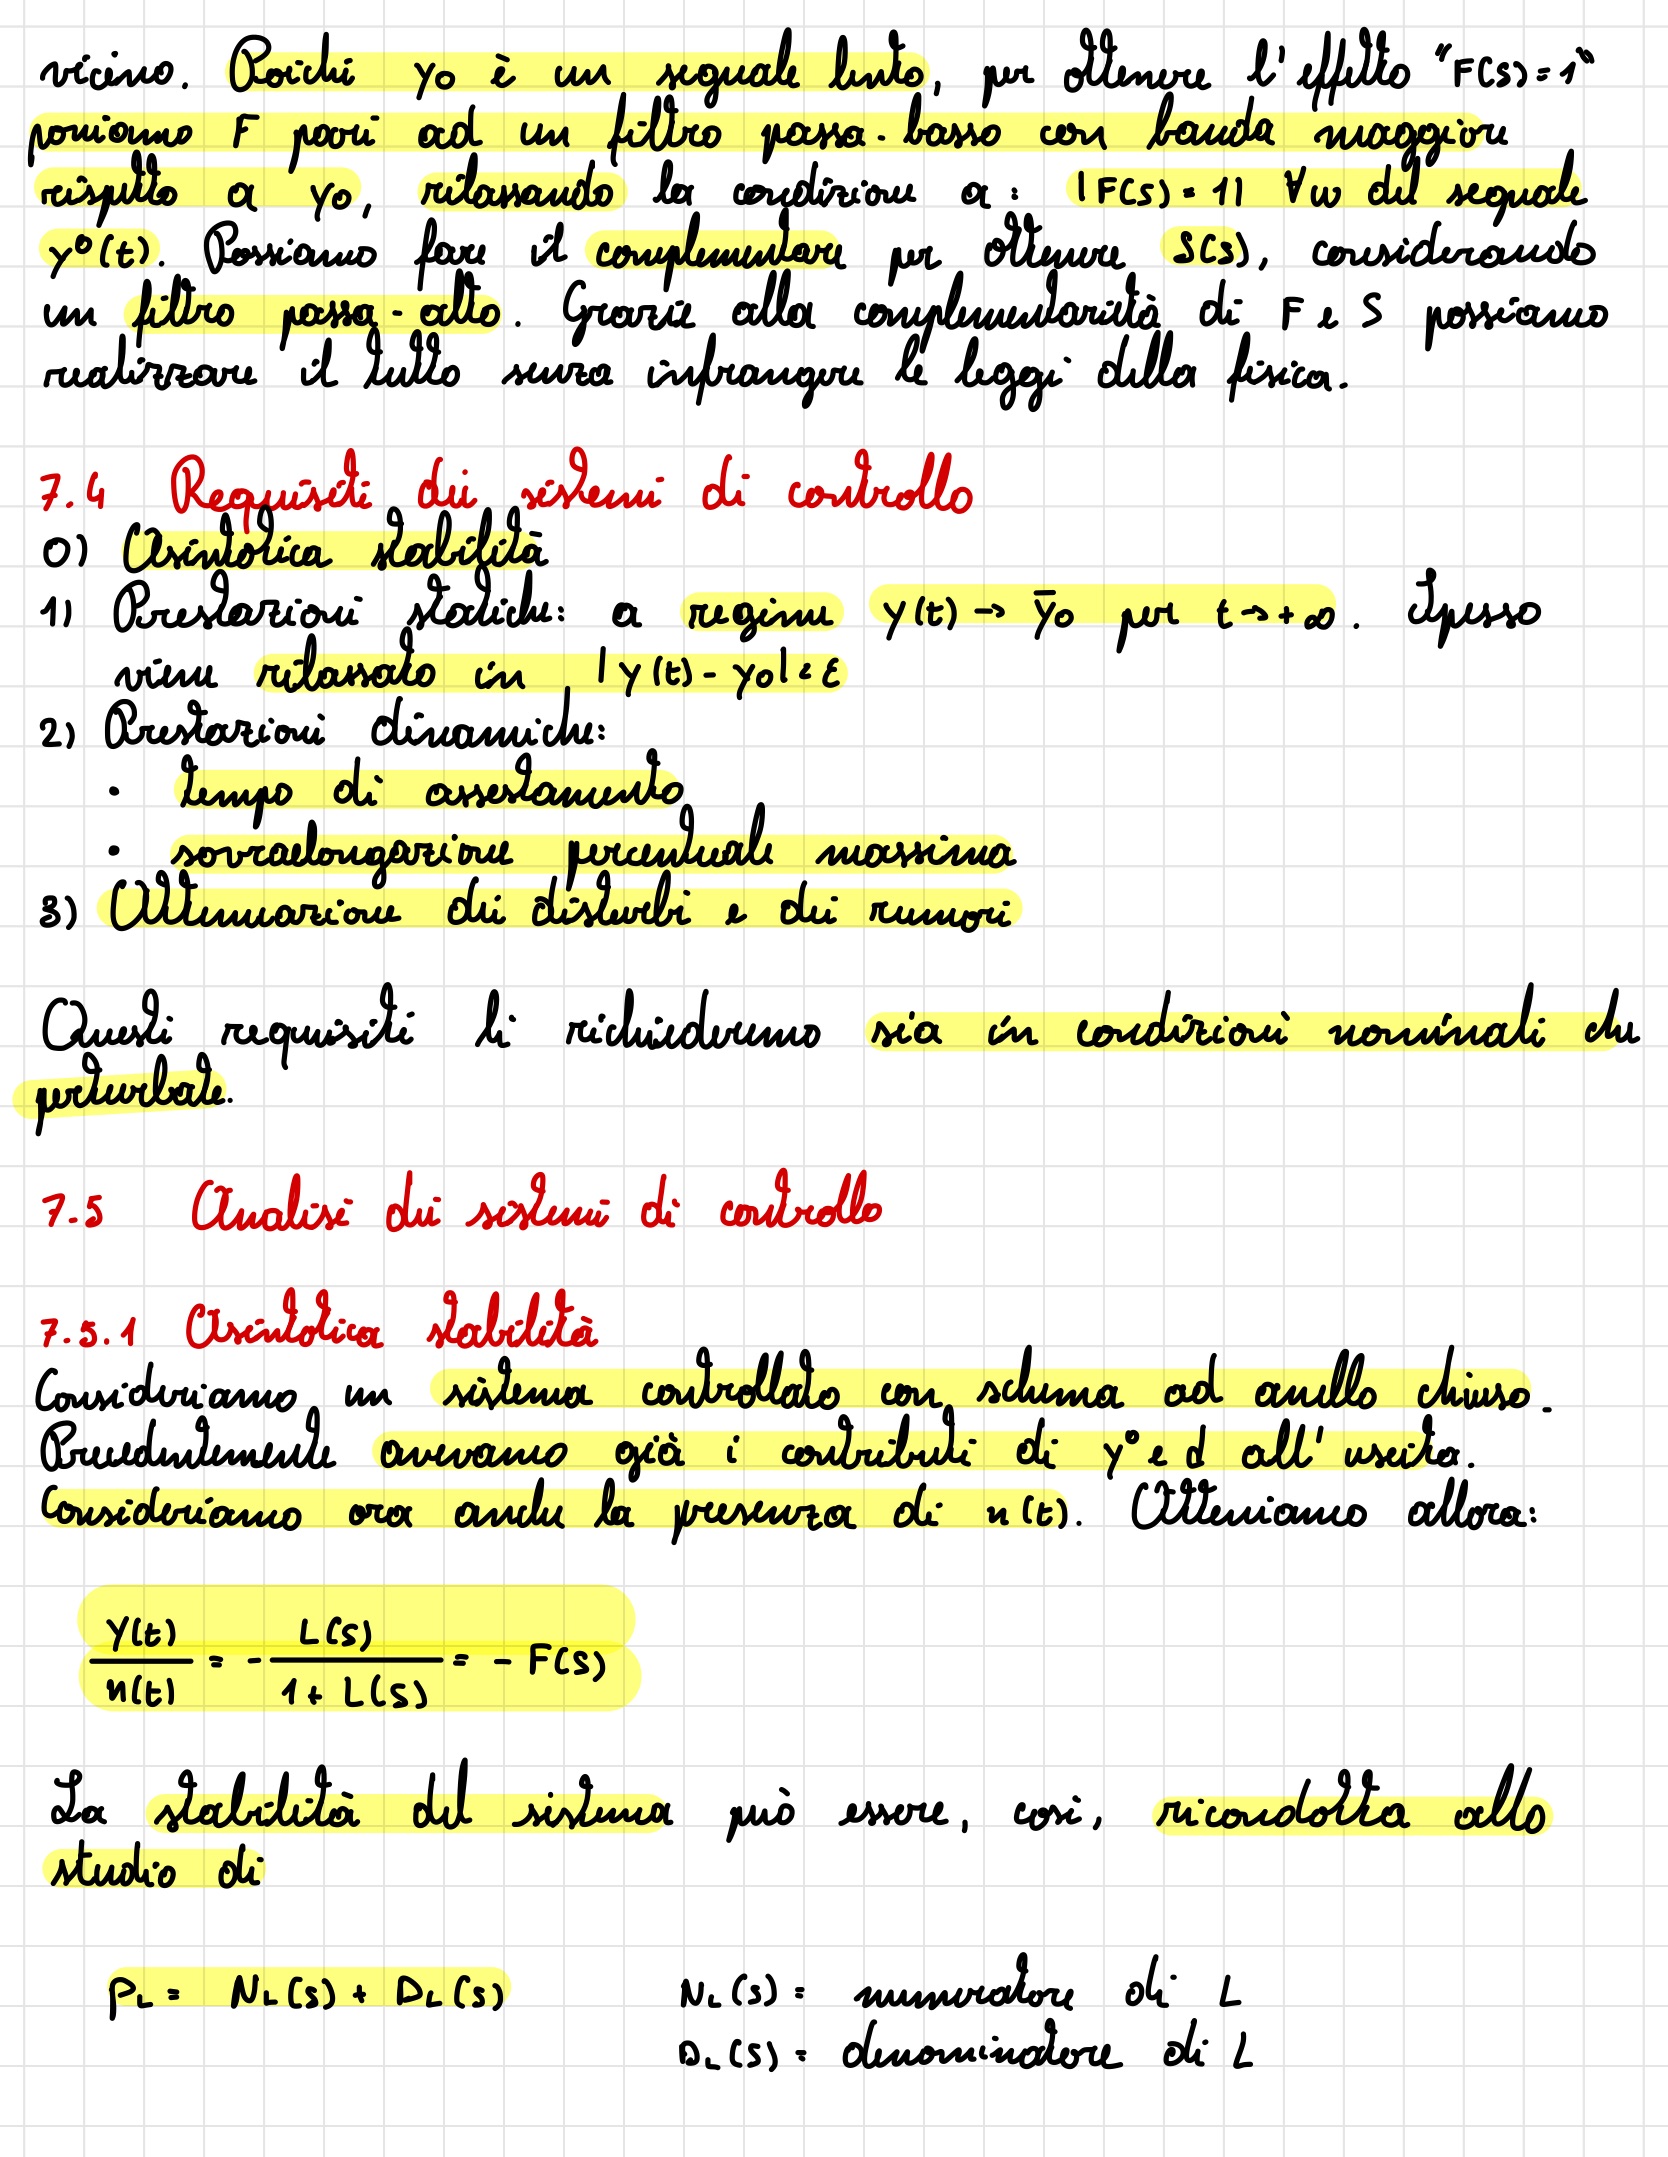 vicino. Poichè y₀ è un segnale lento, per ottenere l'effetto "F(s)=1"
poniamo F pari ad un filtro passa-basso con banda maggiore
rispetto a y₀, rilassando la condizione a: |F(s) = 1| ∀w del segnale
y⁰(t). Possiamo fare il complementare per ottenere S(s), considerando
un filtro passa-alto. Grazie alla complementarietà di F e S possiamo
realizzare il tutto senza infrangere le leggi della fisica.
7.4 Requisiti dei sistemi di controllo
0) Asintotica stabilità
1) Prestazioni statiche: a regime y(t) → ȳ₀ per t → +∞. Spesso
viene rilassato in |y(t) - y₀| < ε
2) Prestazioni dinamiche:
• tempo di assestamento
• sovraelongazione percentuale massima
3) Attenuazione dei disturbi e dei rumori
Questi requisiti li richiederemo sia in condizioni nominali che
perturbate.
7.5 Analisi dei sistemi di controllo
7.5.1 Asintotica stabilità
Consideriamo un sistema controllato con schema ad anello chiuso.
Precedentemente avevamo già i contributi di y⁰ e d all'uscita.
Consideriamo ora anche la presenza di n(t). Otteniamo allora:
Y(t)/n(t) = - L(s)/(1 + L(s)) = - F(s)
La stabilità del sistema può essere, così, ricondotta allo
studio di
p_L = N_L(s) + D_L(s) N_L(s) = numeratore di L
D_L(s) = denominatore di L